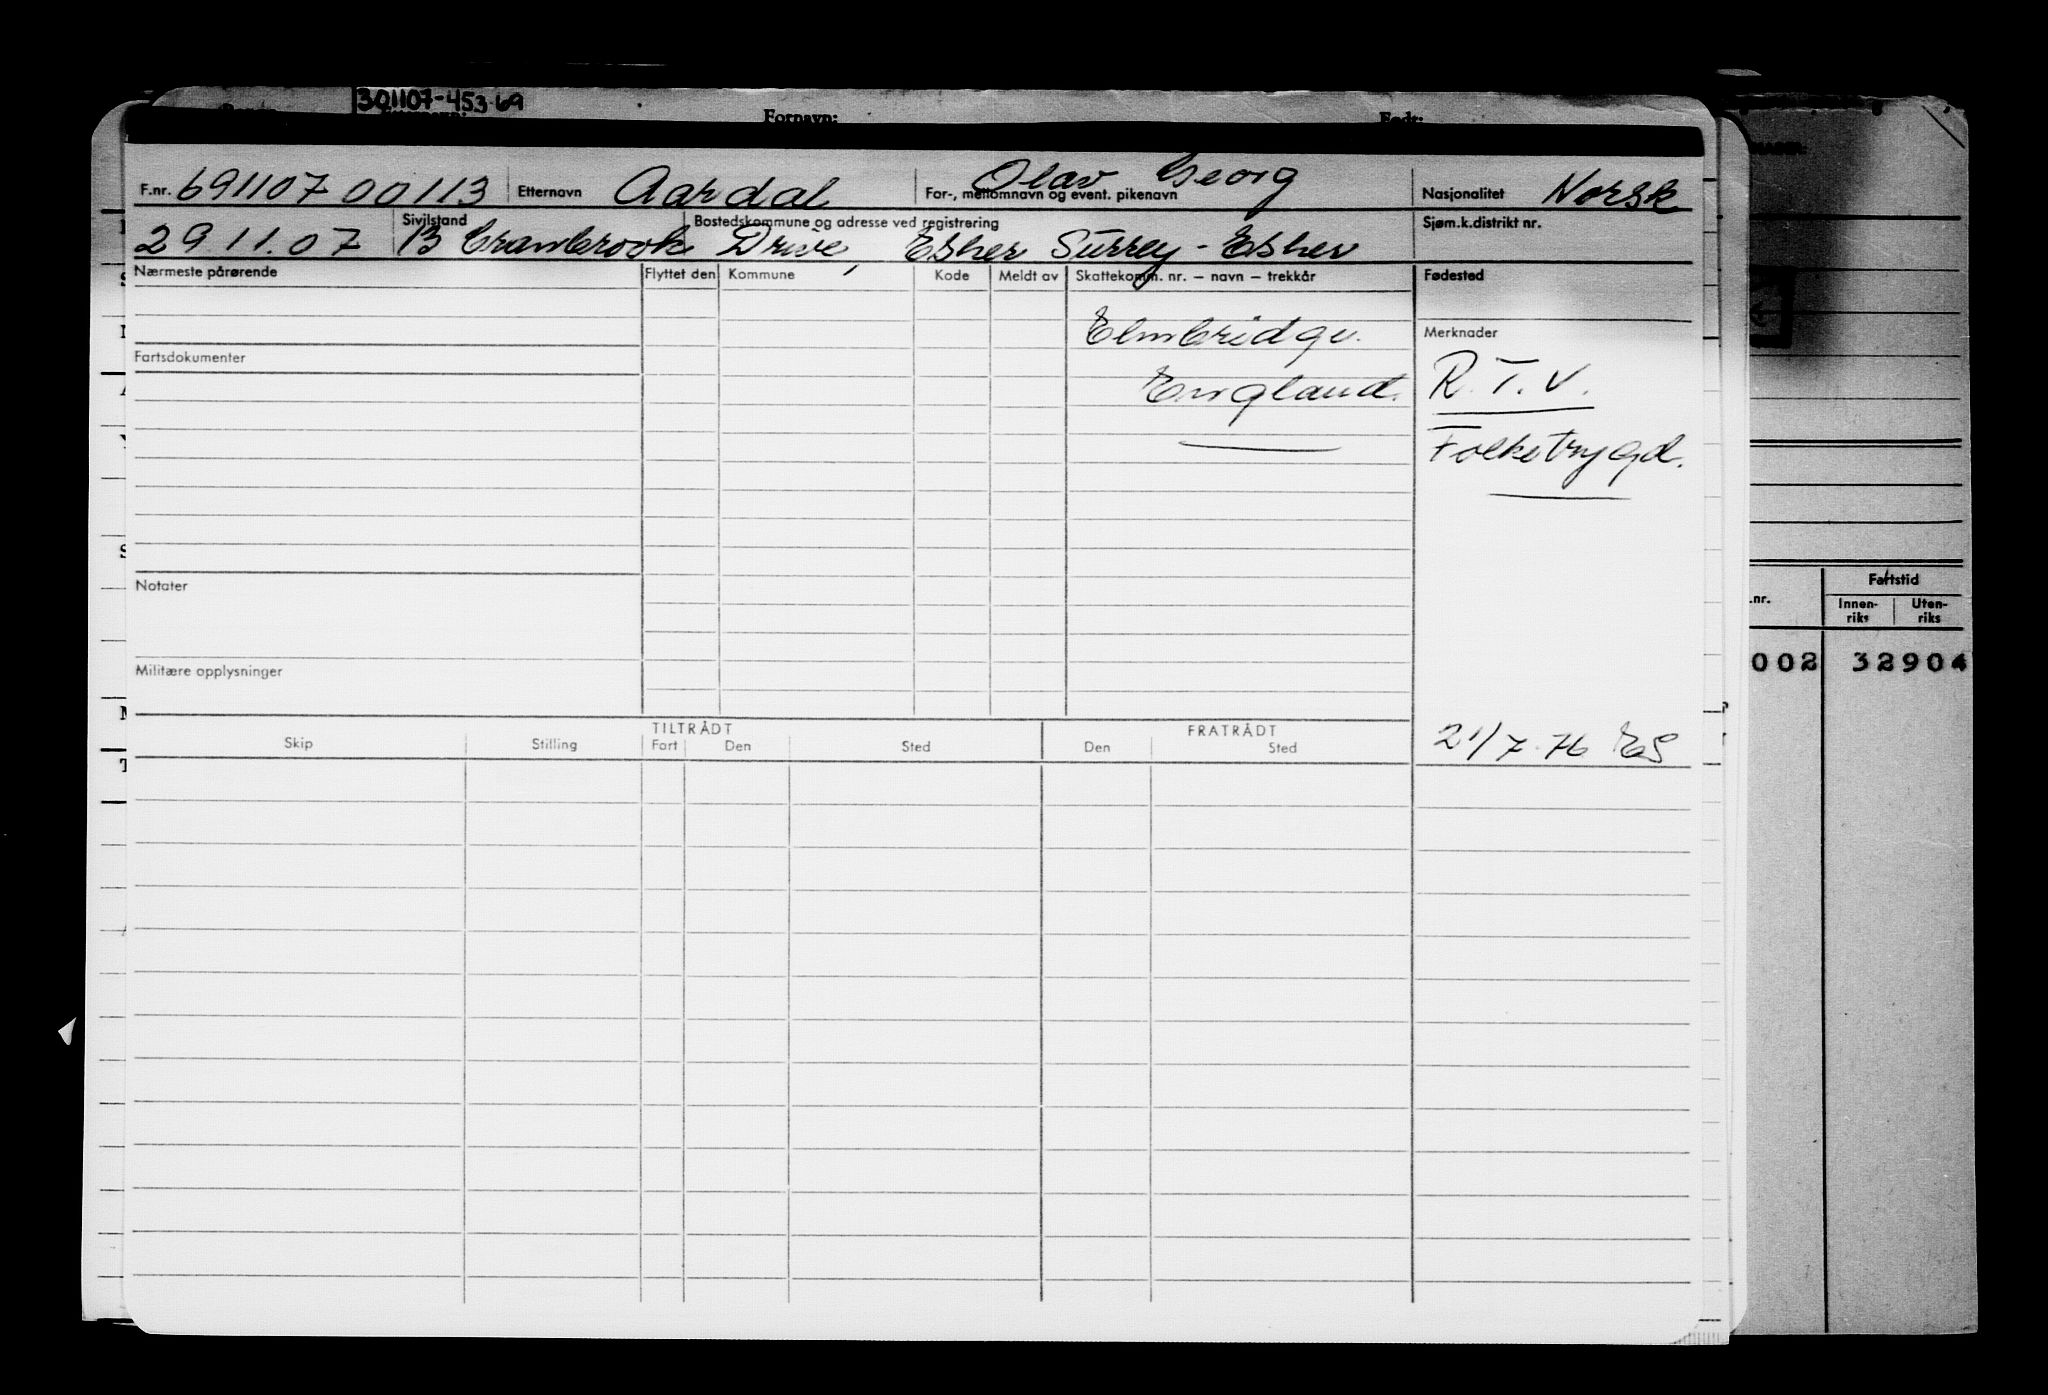 301107-453-69
Fornavn: Født:
F.nr. 691107 00113 Etternavn Aardal For-, mellomnavn og event. pikenavn Olav Georg Nasjonalitet Norsk
29 11. 07 Sivilstand Bostedskommune og adresse ved registrering Sjøm.k.distrikt nr.
13 Cranbrook Drive, Esher Surrey - Esher
Nærmeste pårørende Flyttet den Kommune Kode Meldt av Skattekomm. nr. — navn — trekkår Fødested
Elmbridge. Merknader
Fartsdokumenter
England. R.T.V.
Folketrygd.
Notater
Militære opplysninger
TILTRÅDT FRATRÅDT
Skip Stilling Fart Den Sted Den Sted
21/7-76 ES
Fartstid
.nr. Innen-riks Uten-riks
002 32904